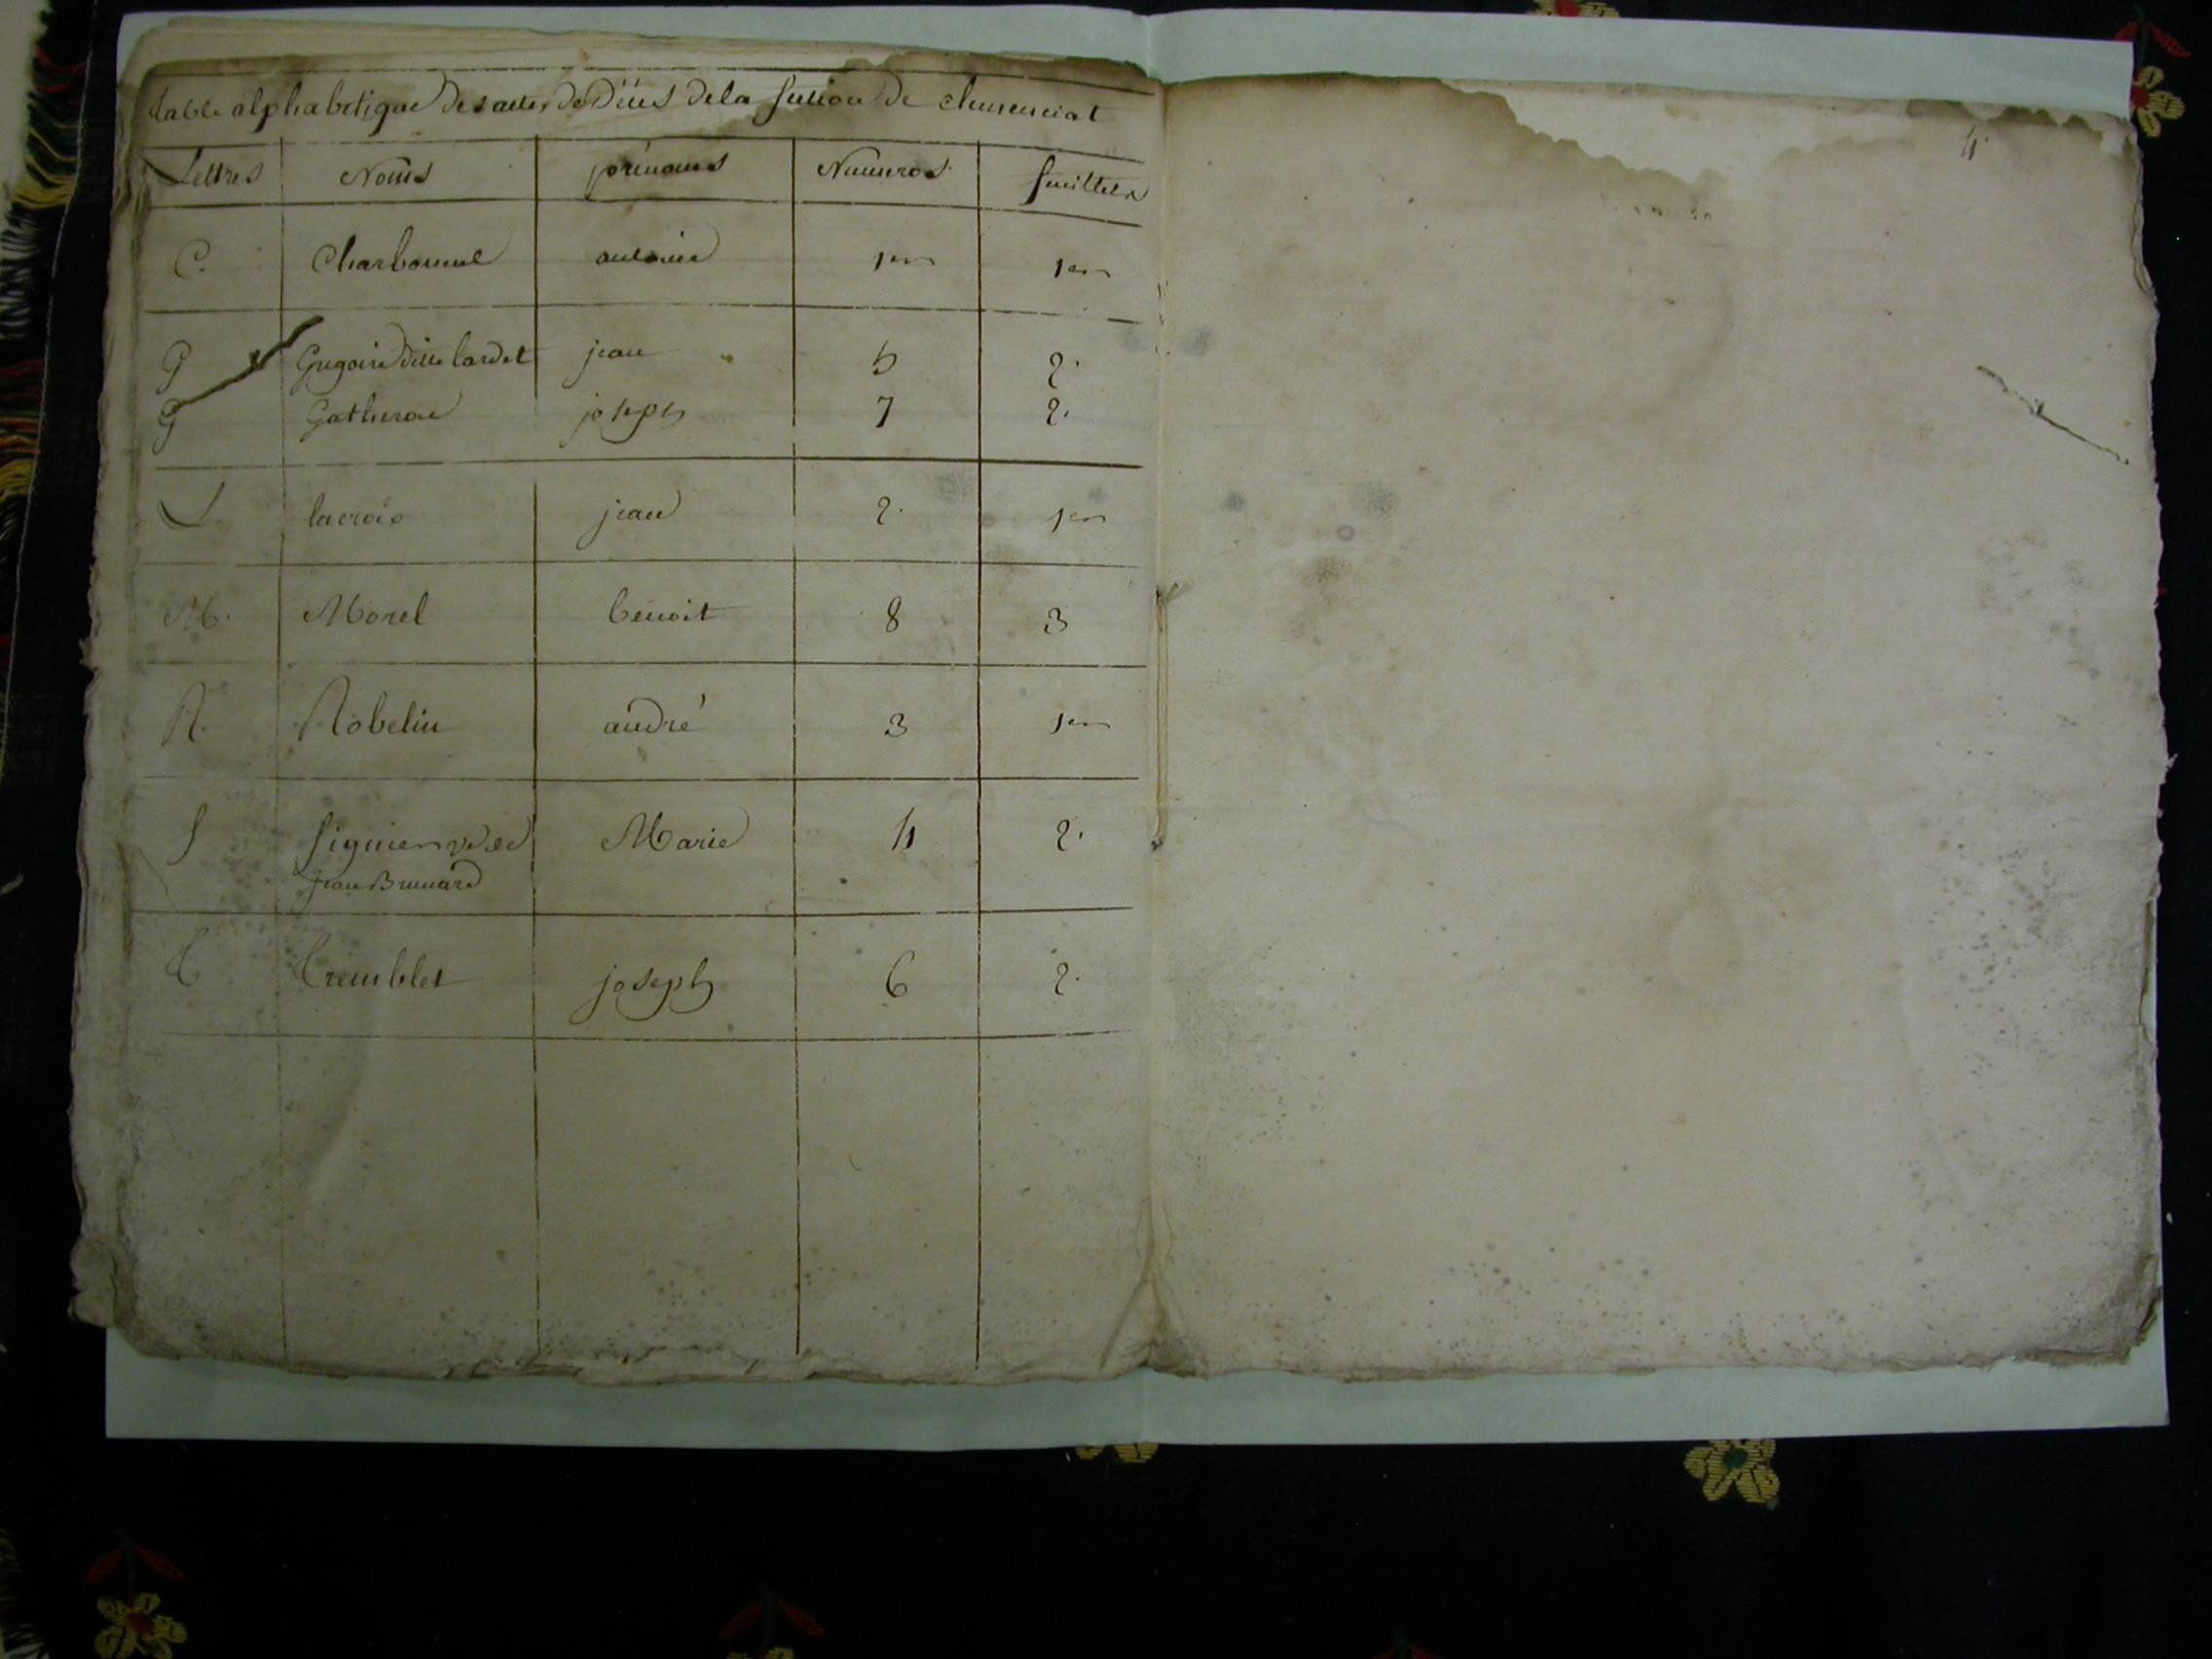 table alphabetique des actes de Décès de la section de chavannat
Lettres Noms prénoms Numeros feuillets
C. Charbonnel antoine 1er 1er
G Gregoire dille lardet jean 5 2.
G Gatheron joseph 7 2.
L. lacroix jean 2. 1er
M. Morel benoit 8 3
R. Robelin andré 3 1er
S Siguier vve de Marie 4 2.
jean Brunard
T Tremblet joseph 6 2.
4